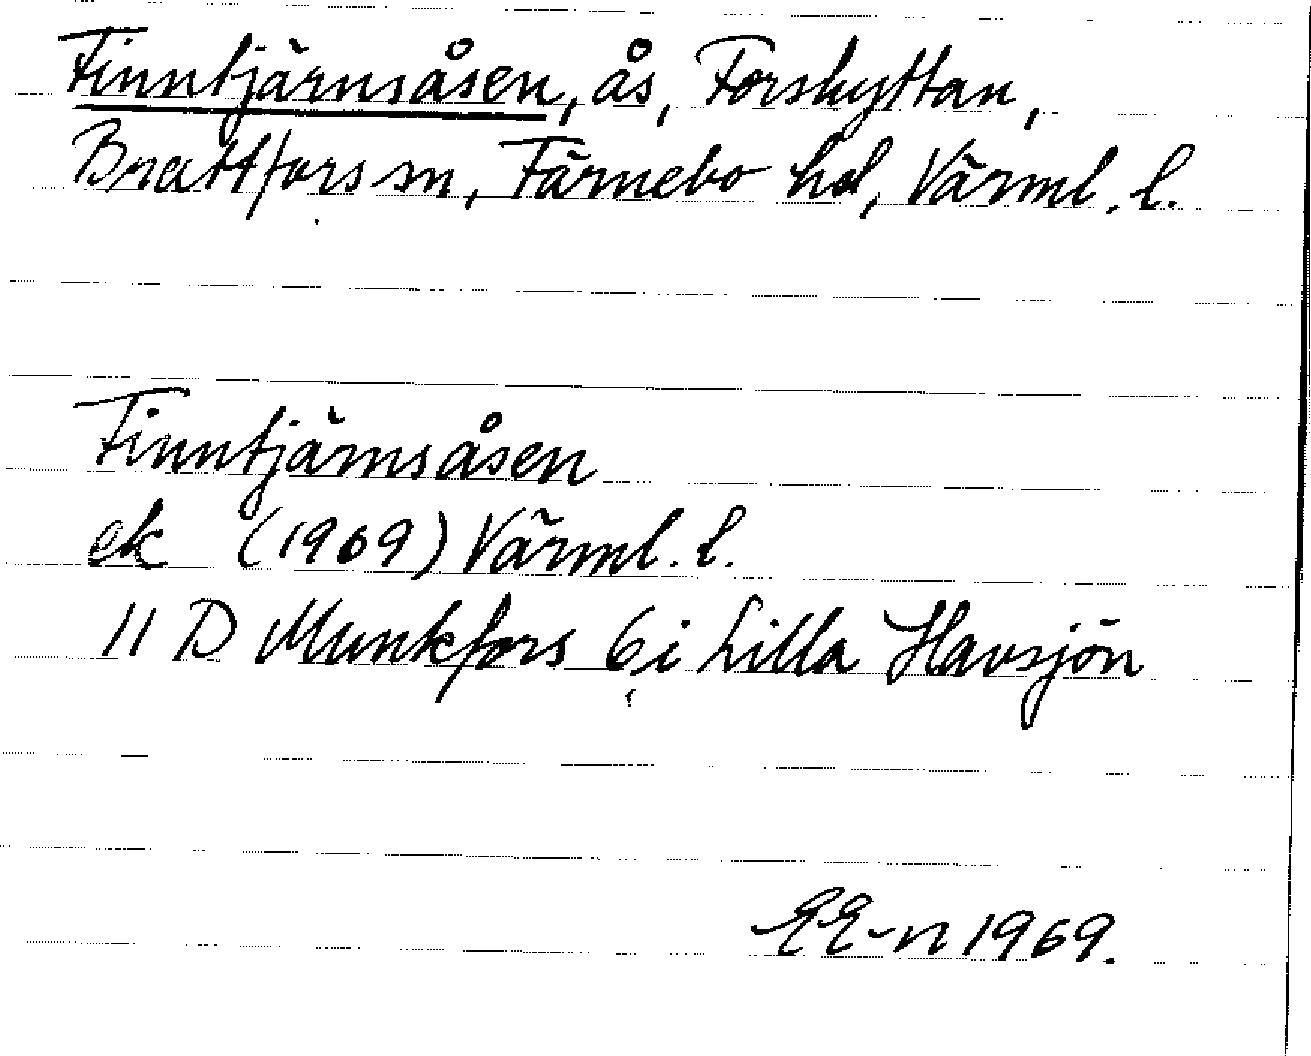 Finntjärnsåsen, ås, Forshyttan,
Brattfors sn, Färnebo hd, Värml. l.
Finntjärnsåsen
ek (1969) Värml. l.
11 D Munkfors 6 i Lilla Havsjön
EE-n 1969.